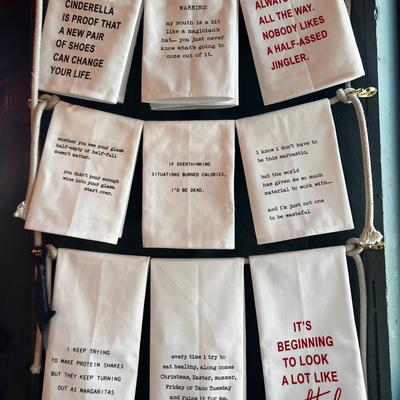 CINDERELLA
IS PROOF THAT
A NEW PAIR
OF SHOES
CAN CHANGE
YOUR LIFE.
WARNING:
my mouth is a bit
like a magician's
hat— you just never
know what's going to
come out of it.
ALWAYS
ALL THE WAY.
NOBODY LIKES
A HALF-ASSED
JINGLER.
whether you see your glass
half-empty or half-full
doesn't matter.
you didn't pour enough
wine into your glass.
start over.
IF OVERTHINKING
SITUATIONS BURNED CALORIES,
I'D BE DEAD.
i know i don't have to
be this sarcastic,
but the world
has given me so much
material to work with—
and i'm just not one
to be wasteful
I KEEP TRYING
TO MAKE PROTEIN SHAKES
BUT THEY KEEP TURNING
OUT AS MARGARITAS
every time i try to
eat healthy, along comes
Christmas, Easter, summer,
Friday or Taco Tuesday
and ruins it for me.
IT'S
BEGINNING
TO LOOK
A LOT LIKE